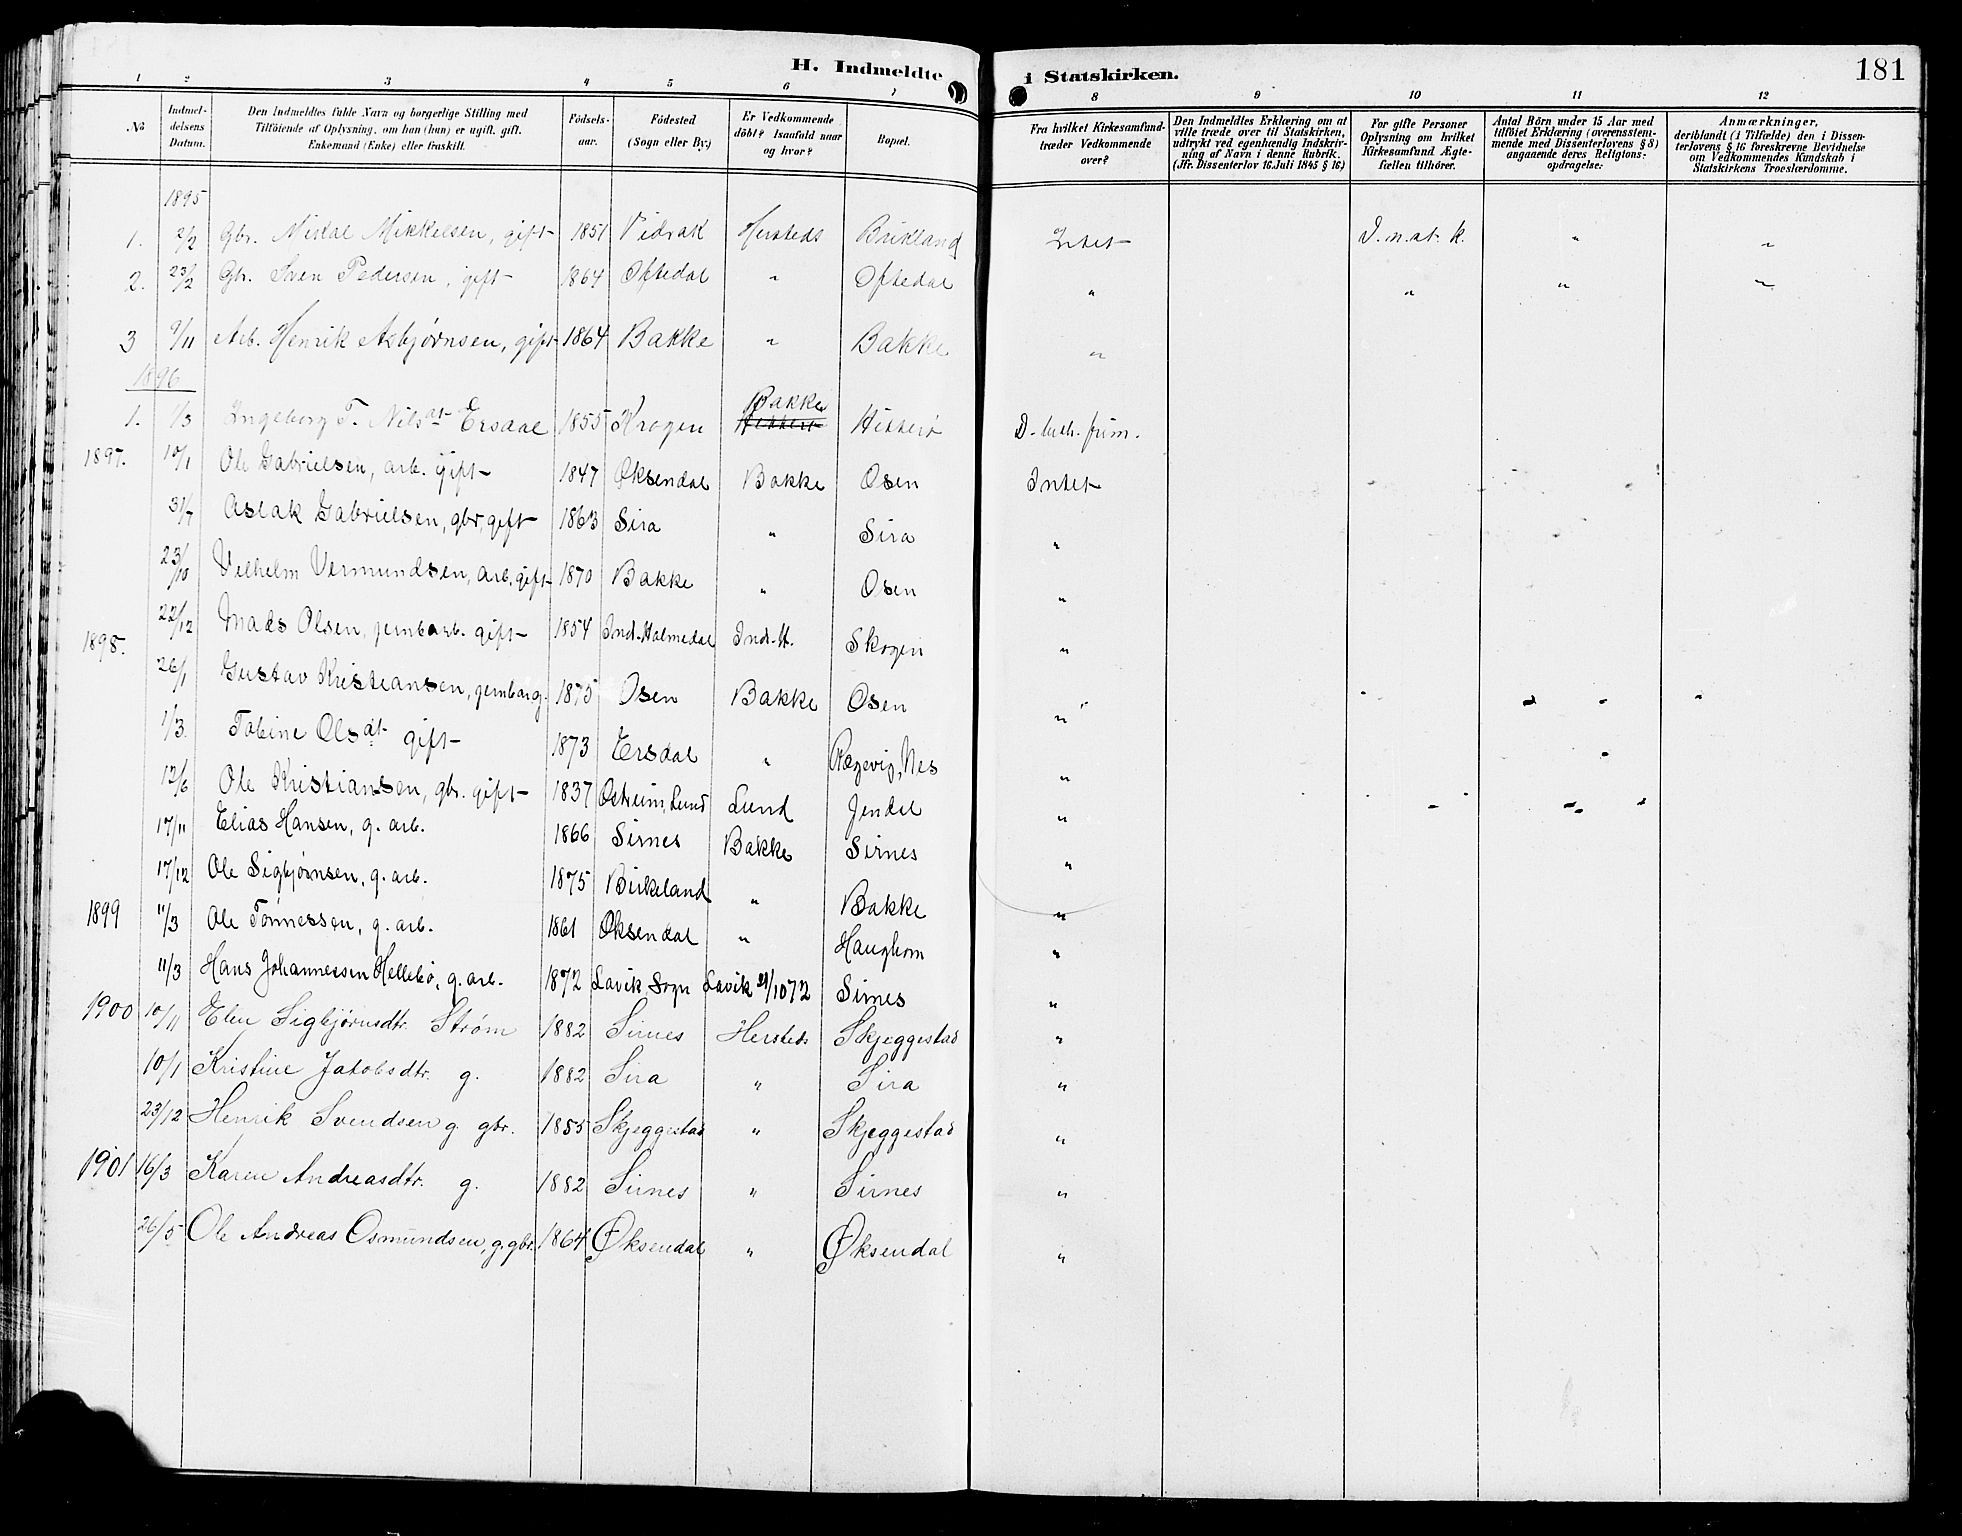 H. Indmeldte i Statskirken. 181
1 2 3 4 5 6 7 8 9 10 11 12
No
Indmel-
delsens
Datum.
Den Indmeldtes fulde Navn og borgerlige Stilling med
Tilföiende af Oplysning, om han (hun) er ugift, gift,
Enkemand (Enke) eller fraskilt.
Födsels-
aar.
Födested
(Sogn eller By.)
Er Vedkommende
döbt? Isaafald naar
og hvor?
Bopæl.
Fra hvilket Kirkesamfund
træder Vedkommende
over?
Den Indmeldtes Erklæring om at
ville træde over til Statskirken,
udtrykt ved egenhændig Indskriv-
ning af Navn i denne Rubrik.
(Jfr. Dissenterlov 16. Juli 1845 § 16)
For gifte Personer
Oplysning om hvilket
Kirkesamfund Ægte-
fællen tilhörer.
Antal Börn under 15 Aar med
tilföiet Erklæring (overensstem-
mende med Dissenterlovens § 8)
angaaende deres Religions-
opdragelse.
Anmærkninger,
deriblandt (i Tilfælde) den i Dissen-
terlovens § 16 foreskrevne Bevidnelse
om Vedkommendes Kundskab i
Statskirkens Troeslærdomme.
1895
1. 2/2 Gbr. Mikkelsen, gift 1851 Hersteds Birkland Intet D. n. st. k. " "
2. 23/2 Gbr. Sven Pedersen, gift 1864 Oftedal " Oftedal " " " "
3 9/11 Arb. Henrik Asbjørnsen, gift 1864 Bakke " Bakke "
1896
1. 1/3 Ingeborg T. Nilsdt Ersdal 1855 Krogen Bakke Hitterø D. luth. frim.
1897. 10/1 Ole Gabrielsen, arb. gift 1847 Øksendal Bakke Osen Intet
31/7 Aslak Gabrielsen, gbr, gift 1863 Sira " Sira "
23/10 Vilhelm Vermundsen, arb. gift 1870 Bakke " Osen "
22/12 Mads Olsen, jernb arb. gift 1854 Ind. Holmedal Ind. H. Skogen "
1898. 26/1 Gustav Kristiansen, jernbarg. 1875 Osen Bakke Osen "
1/3. Tobine Olsdt gift 1873 Ersdal " Rægevig, Nes "
12/6 Ole Kristiansen, gbr. gift 1837 Østreim, Lund Lund Jendal "
17/11 Elias Hansen, g. arb. 1866 Sirnes Bakke Sirnes "
17/12 Ole Sigbjørnsen, g. arb. 1875 Birkeland " Bakke "
1899 11/3 Ole Tønnessen, g. arb. 1861 Øksendal " Haughom "
11/3 Hans Johannessen Hellebø, g. arb. 1872 Lavik, Sogn Lavik 21/10 72 Sirnes "
1900 10/11 Elen Sigbjørnsdtr Strøm 1882 Sirnes Hersteds Skjeggestad "
10/1 Kristine Jakobsdtr. g. 1882 Sira " Sira "
23/12 Henrik Svendsen g. gbr. 1855 Skjeggestad " Skjeggestad "
1901 16/3 Karen Andreasdtr. g. 1882 Sirnes " Sirnes "
26/5 Ole Andreas Osmundsen, g. gbr. 1864 Øksendal " Øksendal "